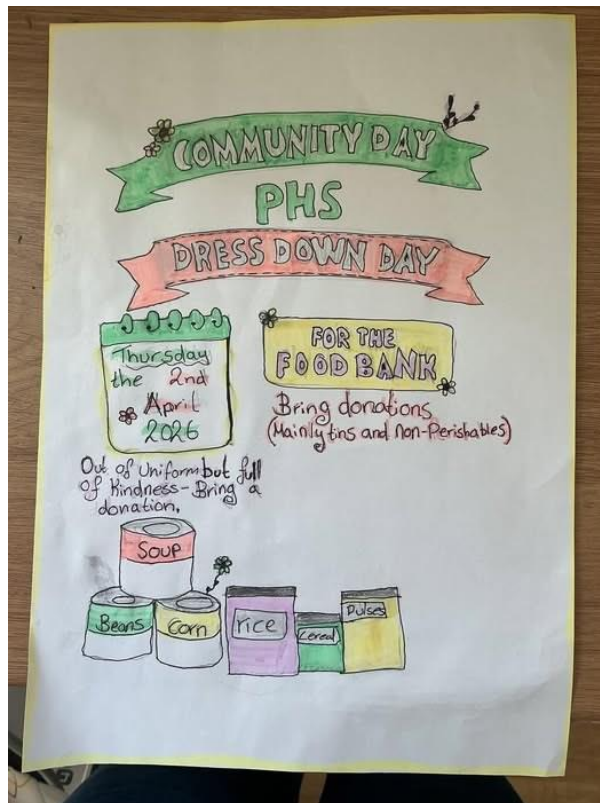 COMMUNITY DAY
PHS
DRESS DOWN DAY
Thursday
the 2nd
April
2026
FOR THE
FOOD BANK
Bring donations
(Mainly tins and non-Perishables)
Out of Uniform but full
of Kindness - Bring a
donation.
SOUP
Beans
Corn
rice
Cereal
Pulses